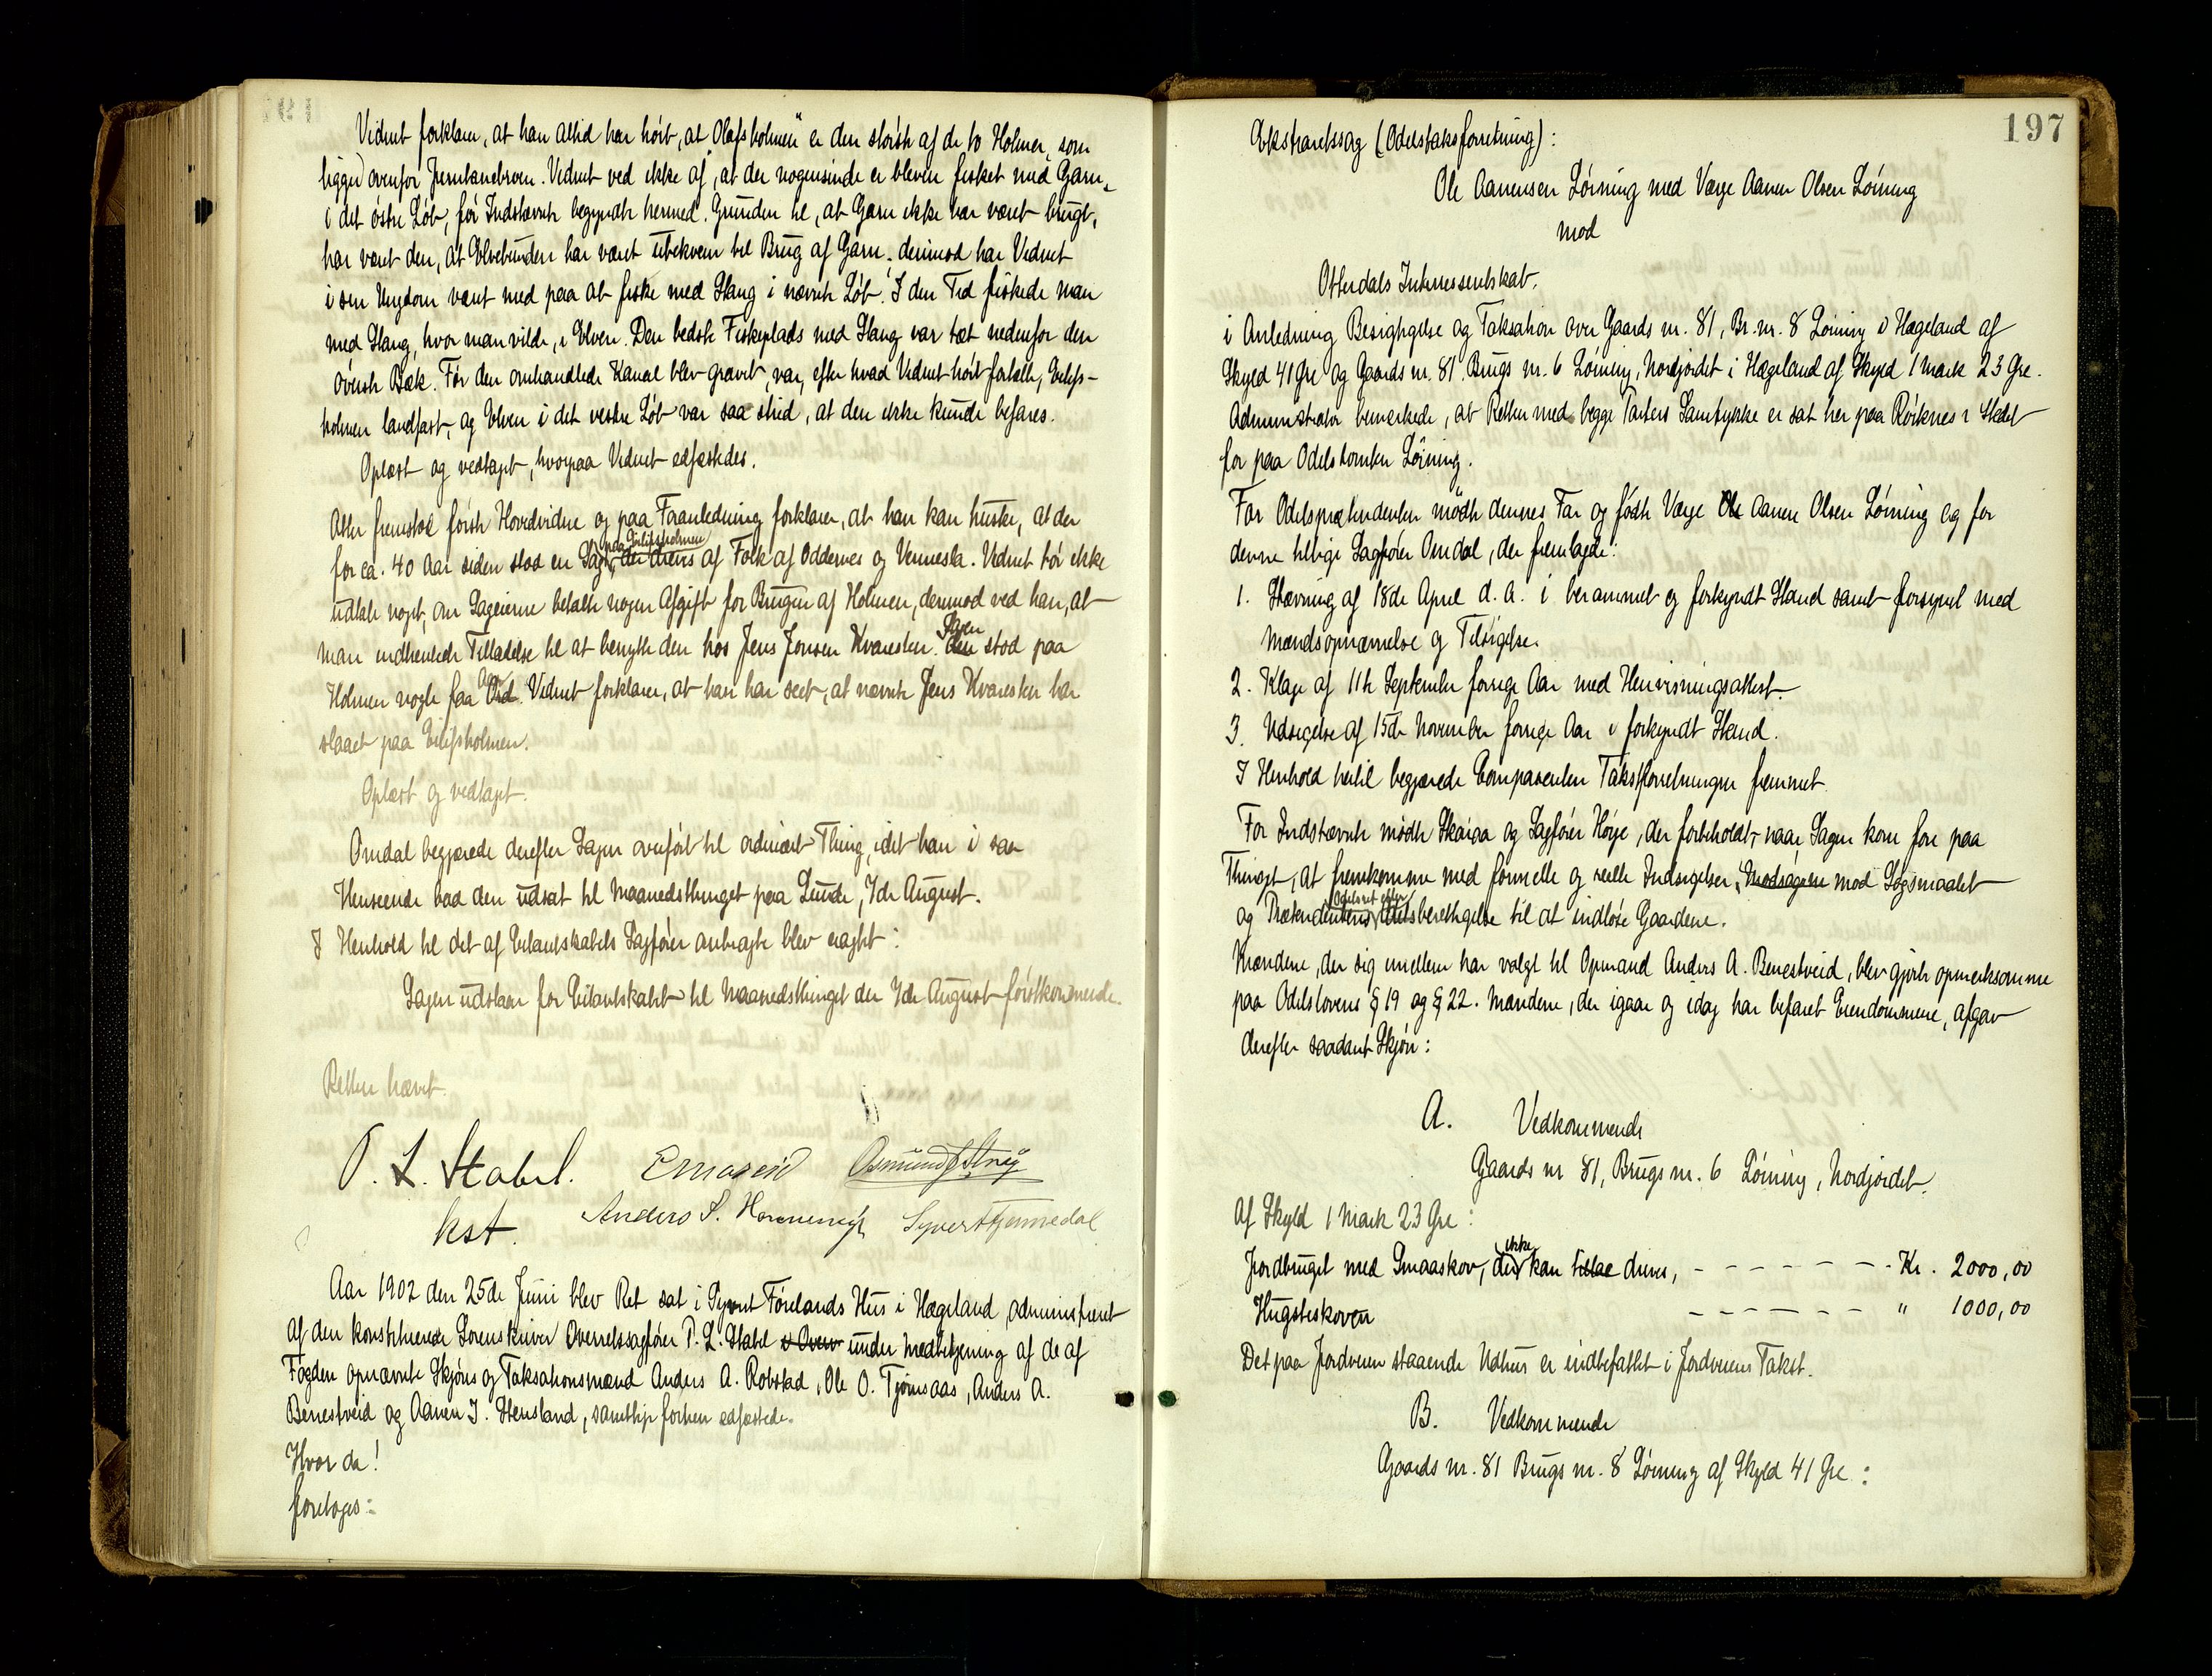 Vidnet forklarer, at han altid har hørt, at „Olafsholmen" er den største af de to Holmer, som
ligger ovenfor Jernbanebroen. Vidnet ved ikke af, at der nogensinde er bleven fisket med Garn
i det østre Løb, før Indstævnte begyndte hermed. Grunden til, at Garn ikke har været brugt,
har været den, at Elvebunden har været ubekvem til Brug af Garn; derimod har Vidnet
i sin Ungdom været med paa at fiske med Stang i nævnte Løb. I den Tid fiskede man
med Stang, hvor man vilde, i Elven. Den bedste Fiskeplads med Stang var tæt nedenfor den
øverste Bæk. Før den omhandlede Kanal blev gravet, var, efter hvad Vidnet hørt fortælle, Eilifs-
holmen landfast, og Elven i det vestre Løb var saa strid, at den ikke kunde befares.
Oplæst og vedtaget, hvorpaa Vidnet edfæstedes.
Atter fremstod første Hovedvidne og paa Foranledning forklarer, at han kan huske, at der
for ca. 40 Aar siden stod en Sag paa Eilifsholmen, der dreves af Folk af Oddernes og Vennesla. Vidnet tør ikke
udtale noget, om Sageierne betalte nogen Afgift for Brugen af Holmen, derimod ved han, at
man indhentede Tilladelse til at benytte den hos Jens Jonsen Kvaresten. den Sagen stod paa
Holmen nogle faa Aar. Vidnet forklarer, at han har seet, at nævnte Jens Kvaresten har
slaaet paa Eilifsholmen.
Oplæst og vedtaget.
Omdal begjærede derefter Sagen overført til ordinært Thing, idet han i saa
Henseende bad den udsat til Maanedsthinget paa Lunde, 7de August.
I Henhold til det af Citantskabets Sagfører anbragte blev eragtet:
Sagen udstaar for Citantskabet til Maanedsthinget den 7de August førstkommende.
Retten hævet.
P. L. Stabel. E Moseid Osmund J Strøy
kst. Anders S. Homme Syvert Hommedal
Aar 1902 den 25de Juni blev Ret sat i Syvert Førelands Hus i Hægeland, administreret
af den konstituerede Sorenskriver Overretssagfører P. L. Stabel under Medbetjening af de af
Fogden opnævnte Skjøns og Taksationsmænd Anders A. Robstad, Ole O. Tjomsaas, Anders A.
Benestveid og Aanen T. Stensland, samtlige forhen edfæstede.
Hvor da!
foretoges:
197
Ekstraretssag (Odelstaksforretning):
Ole Aanensen Løining med Værge Aanen Olsen Løining
mod
Otterdals Interessentskab.
i Anledning Besigtigelse og Taksation over Gaards nr. 81, Br. nr. 8 Løining i Hægeland af
Skyld 41 Øre og Gaards nr. 81, Brugs nr. 6 Løining, Nordjordet i Hægeland af Skyld 1 Mark 23 Øre.
Administrator bemærkede, at Retten med begge Parters Samtykke er sat her paa Røiknes i Stedet
for paa Odelstomten Løining.
For Odelsprætendenten mødte dennes Far og fødte Værge Ole Aanen Olsen Løining og for
denne tillige Sagfører Omdal, der fremlagde:
1. Stævning af 18de April d. A. i berammet og forkyndt Stand samt forsynet med
Mændsopnævnelse og Tilsigelse.
2. Klage af 11te September forrige Aar med Henvisningsattest.
3. Udsigelse af 15de November forrige Aar i forkyndt Stand.
I Henhold hertil begjærede Comparenten Takstforretningen fremmet.
For Indstævnte mødte Skaiaa og Sagfører Høije, der forbeholdt, naar Sagen kom fore paa
Thinget, at fremkomme med formelle og reelle Indsigelser, Modsigelse mod Søgsmaalet
og Prætendentens Odelsret eller Odelsberettigelse til at indløse Gaardene.
Mændene, der sig imellem har valgt til Opmand Anders A. Benestveid, blev gjorte opmerksomme
paa Odelslovens § 19 og § 22. Mændene, der igaar og idag har befaret Eiendommene, afgav
derefter saadant Skjøn:
A. Vedkommende
Gaards nr 81, Brugs nr. 6 Løining, Nordjordet,
Af Skyld 1 Mark 23 Øre:
Jordbruget med Smaaskov, der ikke kan tillae drives, - - - - - - - Kr. 2000,00
Hugsteskoven - - - - - - - " 1000,00
Det paa Jordveien staaende Udhus er indbefattet i Jordveiens Takst.
B. Vedkommende
Gaards nr. 81 Brugs nr. 8 Løining af Skyld 41 Øre: